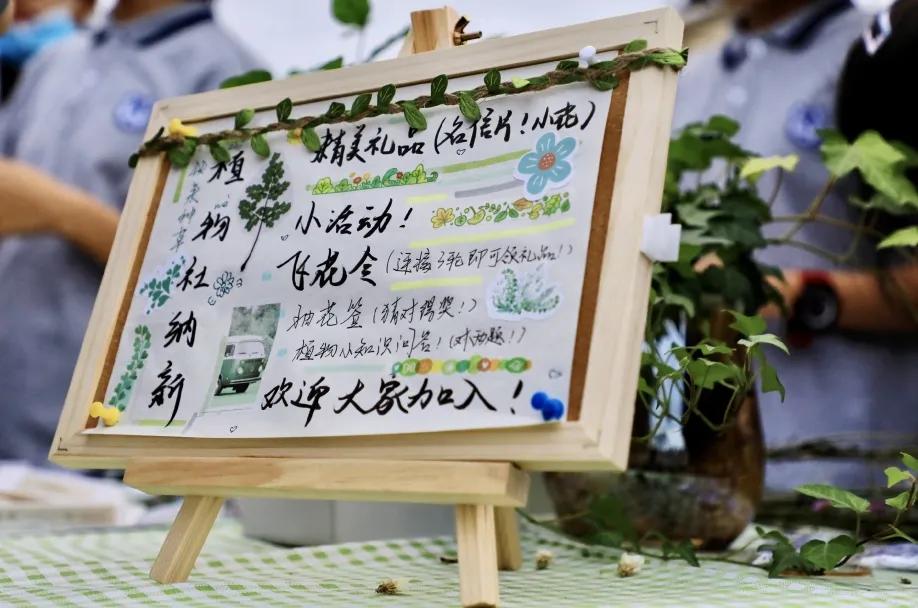 来种草
植物社纳新
精美礼品（名信片！小花）
小活动！
飞花令（连接3轮即可领礼品！）
抽花签（猜对得奖！）
植物小知识问答！（对题！）
欢迎大家加入！